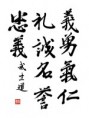 義勇氣仁
礼誠名誉
忠義 武士道